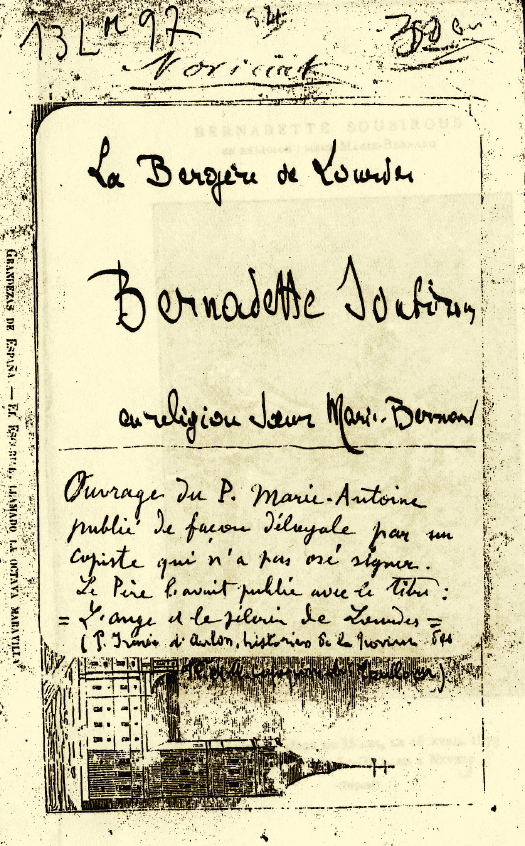 13 L M 97
La Bergère de Lourdes
Bernadette Soubirous
en religion Sœur Marie-Bernard
Ouvrage du P. Marie-Antoine
publié de façon déloyale par un
copiste qui n'a pas osé signer.
Le Père l'avait publié avec le titre :
= L'ange et le pélerin de Lourdes =
(P. Irénée d'Aulon, historien de la Province des
Toulouse)
GRANDEZAS DE ESPAÑA. — EL ESCORIAL, LLAMADO LA OCTAVA MARAVILLA
BERNADETTE SOUBIROUS
EN RELIGION SŒUR MARIE-BERNARD